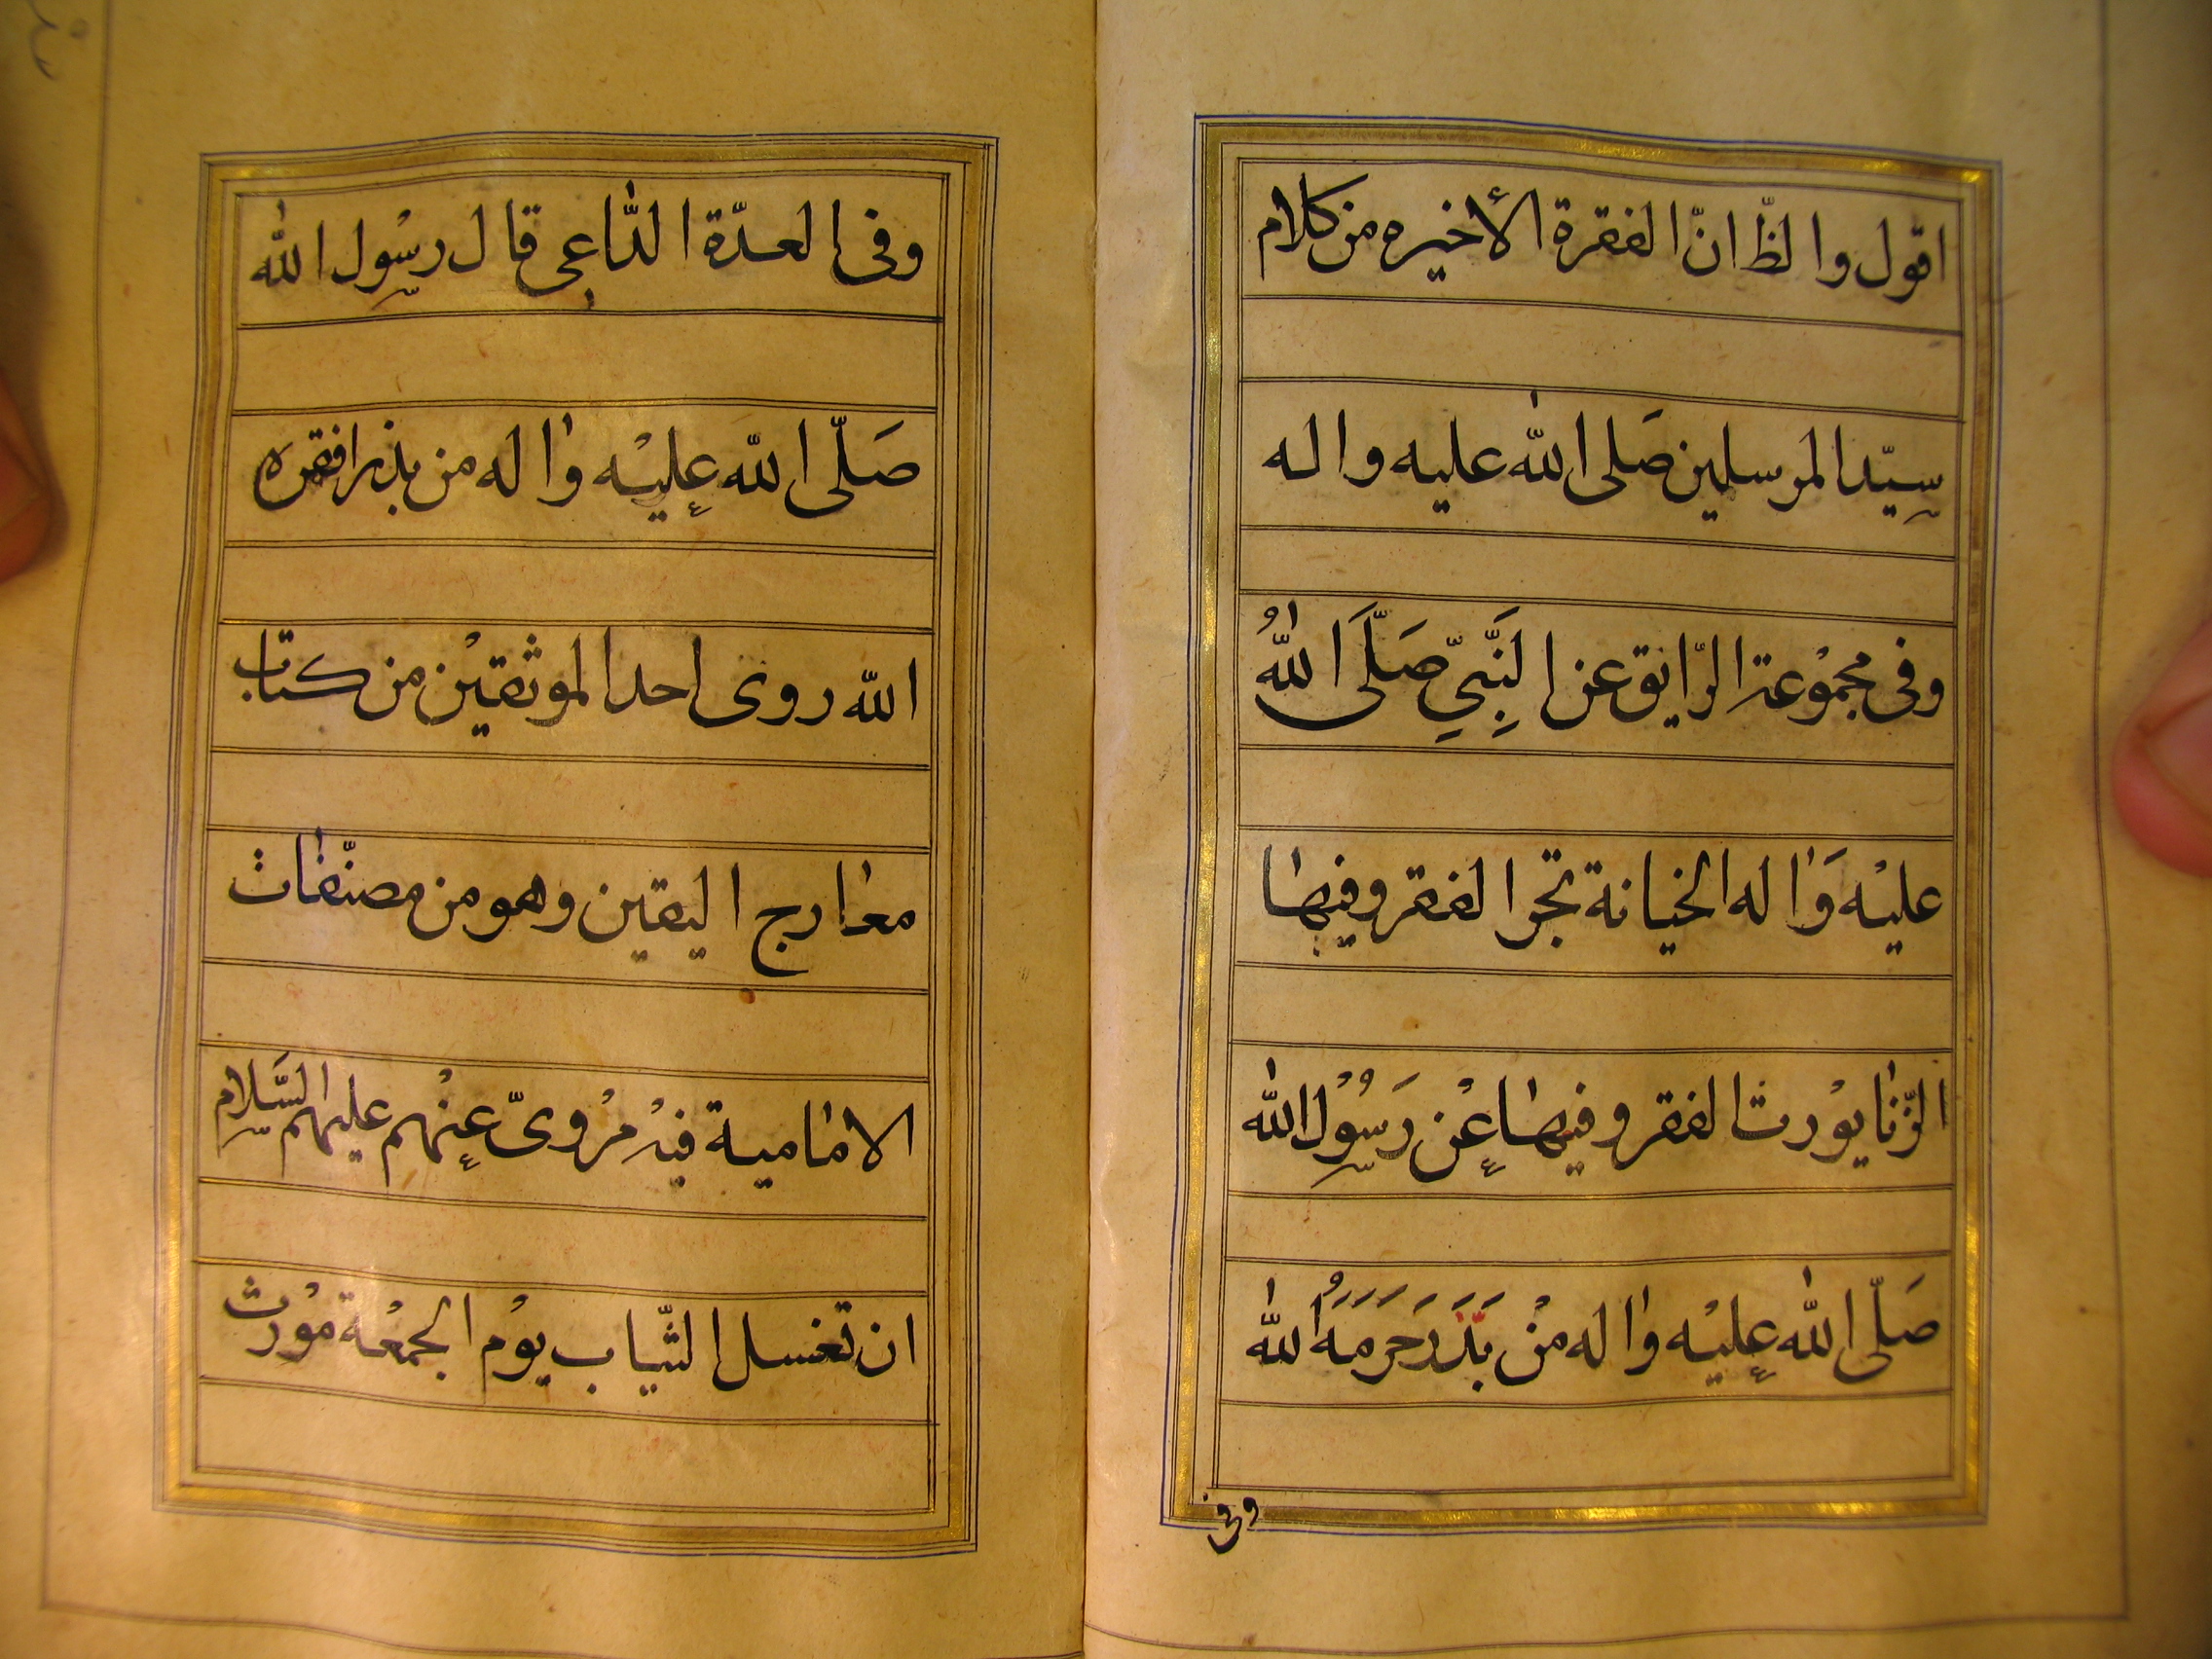 اقول والظّ انّ الفقرة الأخيره من كلام
سِيّد المرسلين صَلى الله عليه واله
وفى مجمُوعة الرّايق عن النَبِّيِّ صَلَّىَ اللهُ
عليْه وَاله الخيانة تجر الفقر وفيها
الزّنا يوُرث الفقر وفيها عِنْ رَسُوُل الله
صَلّى الله عِليْه واله منْ بَذَرَ حَرَمَهُ الله
وفى
وفى العدّة الدّاعِى قال رسُول الله
صَلّى الله عِليْه واله من بذر افقره
الله روى احد الموثقيْن من كتاب
معارج اليقين وهو من مصنّفات
الاماميه فيْه مرْوىّ عِنْهم عليهم السَّلام
ان تغسل الثّياب يوْم الجمْعة موْرث